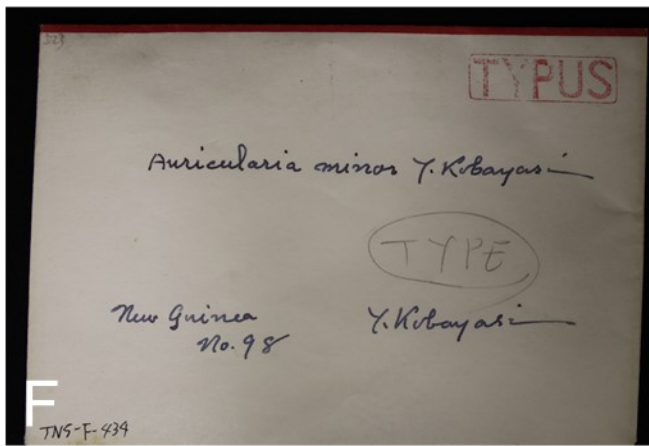 523
TYPUS
Auricularia minor Y. Kobayasi
TYPE
New Guinea
Y. Kobayasi
No. 98
F
TNS-F-434